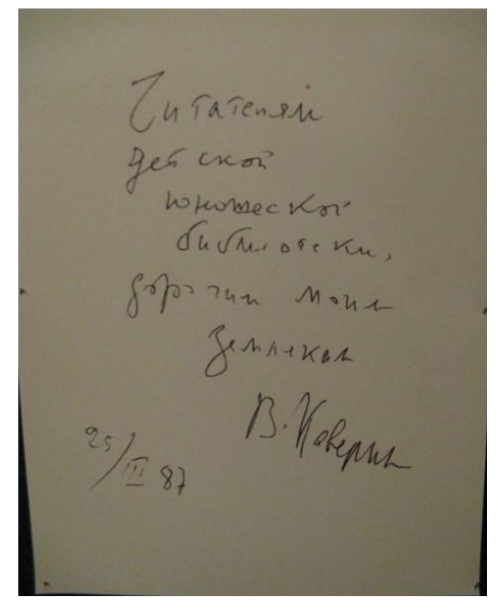 Читателям
детской
юношеской
библиотеки,
дорогим моим
землякам
В. Каверин
25/III 87